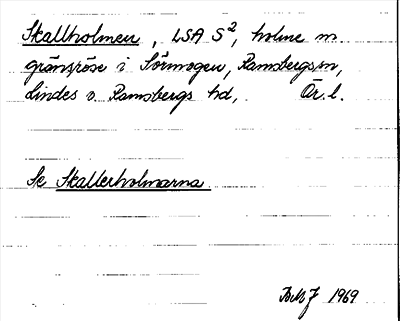 Skallholmen, LSA S², holme m.
gränsröse i Sörmogen, Ramsbergs sn,
Lindes o. Ramsbergs hd, Ör. l.
Se Skallerholmarna
BMJ 1969